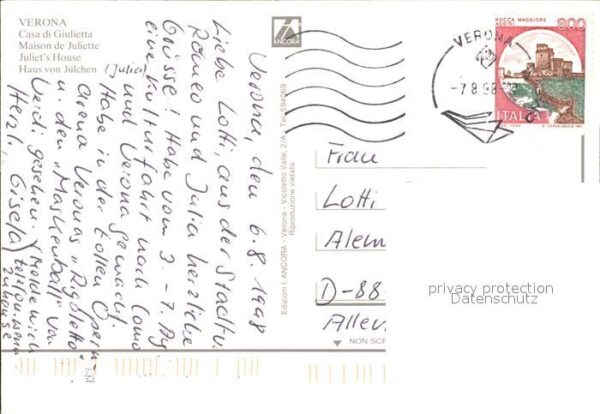 VERONA
Casa di Giulietta
Maison de Juliette
Juliet's House
Haus von Jülchen
(Julia)
Verona, den 6.8.1998
Liebe Lotti, aus der Stadt v.
Romeo und Julia herzliche
Grüsse! Habe vom 3. - 7. Aug.
eine Kulturfahrt nach Como
und Verona gemacht.
Habe in der tollen Opern-
Arena Veronas "Rigoletto"
u. den "Maskenball" von
Verdi gesehen. (Melde mich
Herzl. Gisela telefonisch
zuhause)
ANCORA
Edizioni L'ANCORA - Verona - Vicoletto Valle, 2/A - Tel. 594069
Riproduzione vietata
NON SCR
VERONA
-7.8.98
ROCCA MAGGIORE
ASSISI
800
ITALIA
Frau
Lotti
Alem
D-88
Allen
privacy protection
Datenschutz